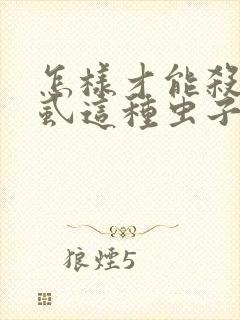 怎樣才能殺
虱這種虫子
狼煙5